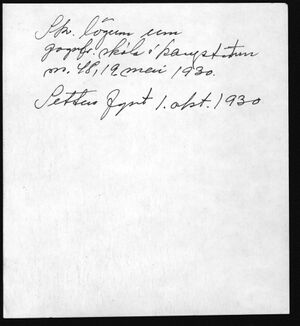 Sk. lögum um
gagnfr. skóla í kaupstöðum
nr. 48, 19 maí 1930.
Settur fyrst 1. okt. 1930